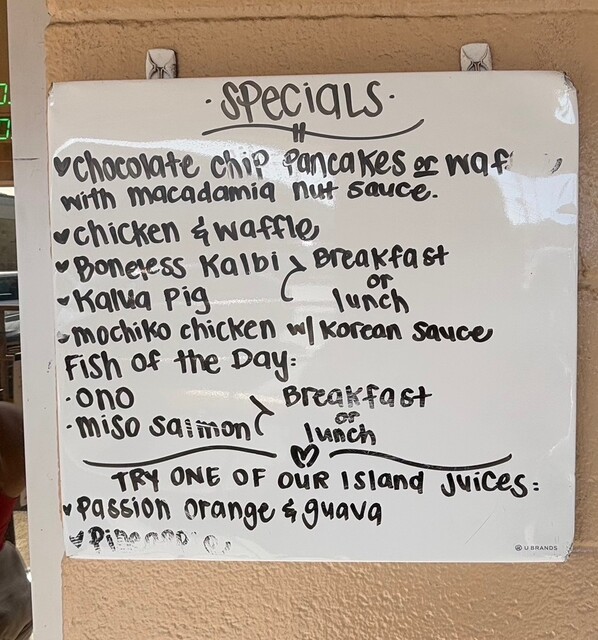 ·Specials·
♥chocolate chip pancakes or waf
with macadamia nut sauce.
♥chicken & waffle
♥Boneless Kalbi > Breakfast
or
♥Kalua pig lunch
♥mochiko chicken w/ Korean sauce
Fish of the Day:
·ono > Breakfast
or
·miso salmon lunch
TRY ONE OF OUR Island Juices:
♥Passion orange & guava
U BRANDS